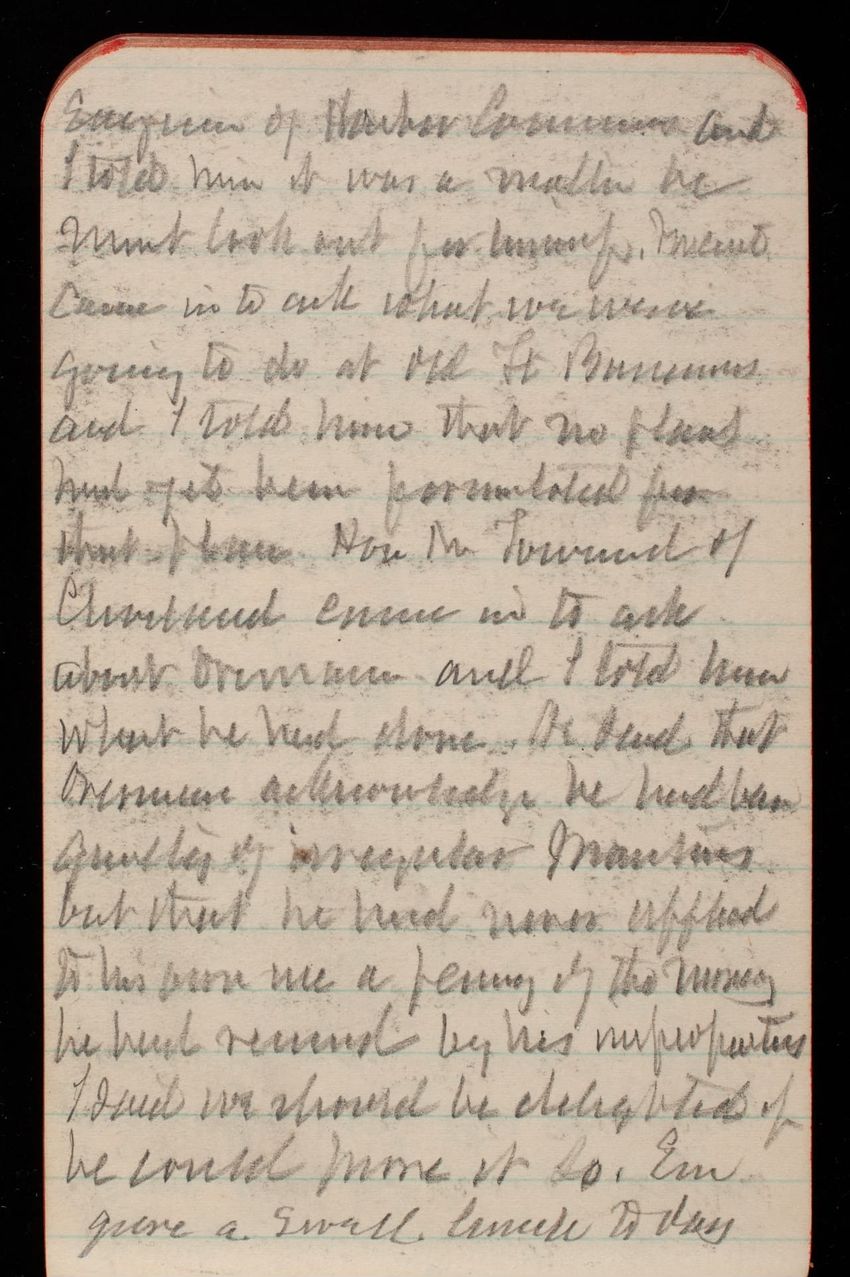 Engineer of Harbor Commrs and
I told him it was a matter he
must look out for himself.
came in to ask what we were
going to do at Old Ft
and I told him that no plans
had yet been formulated for
that place. Hon Mr Townsend of
Cleveland came in to ask
about and I told him
what he had done. He said that
acknowledge he had been
guilty of irregular
but that he had never applied
to his own use a penny of the money
he had received by his improprieties
I said we should be delighted if
he could prove it so. Em
gave a small lunch today